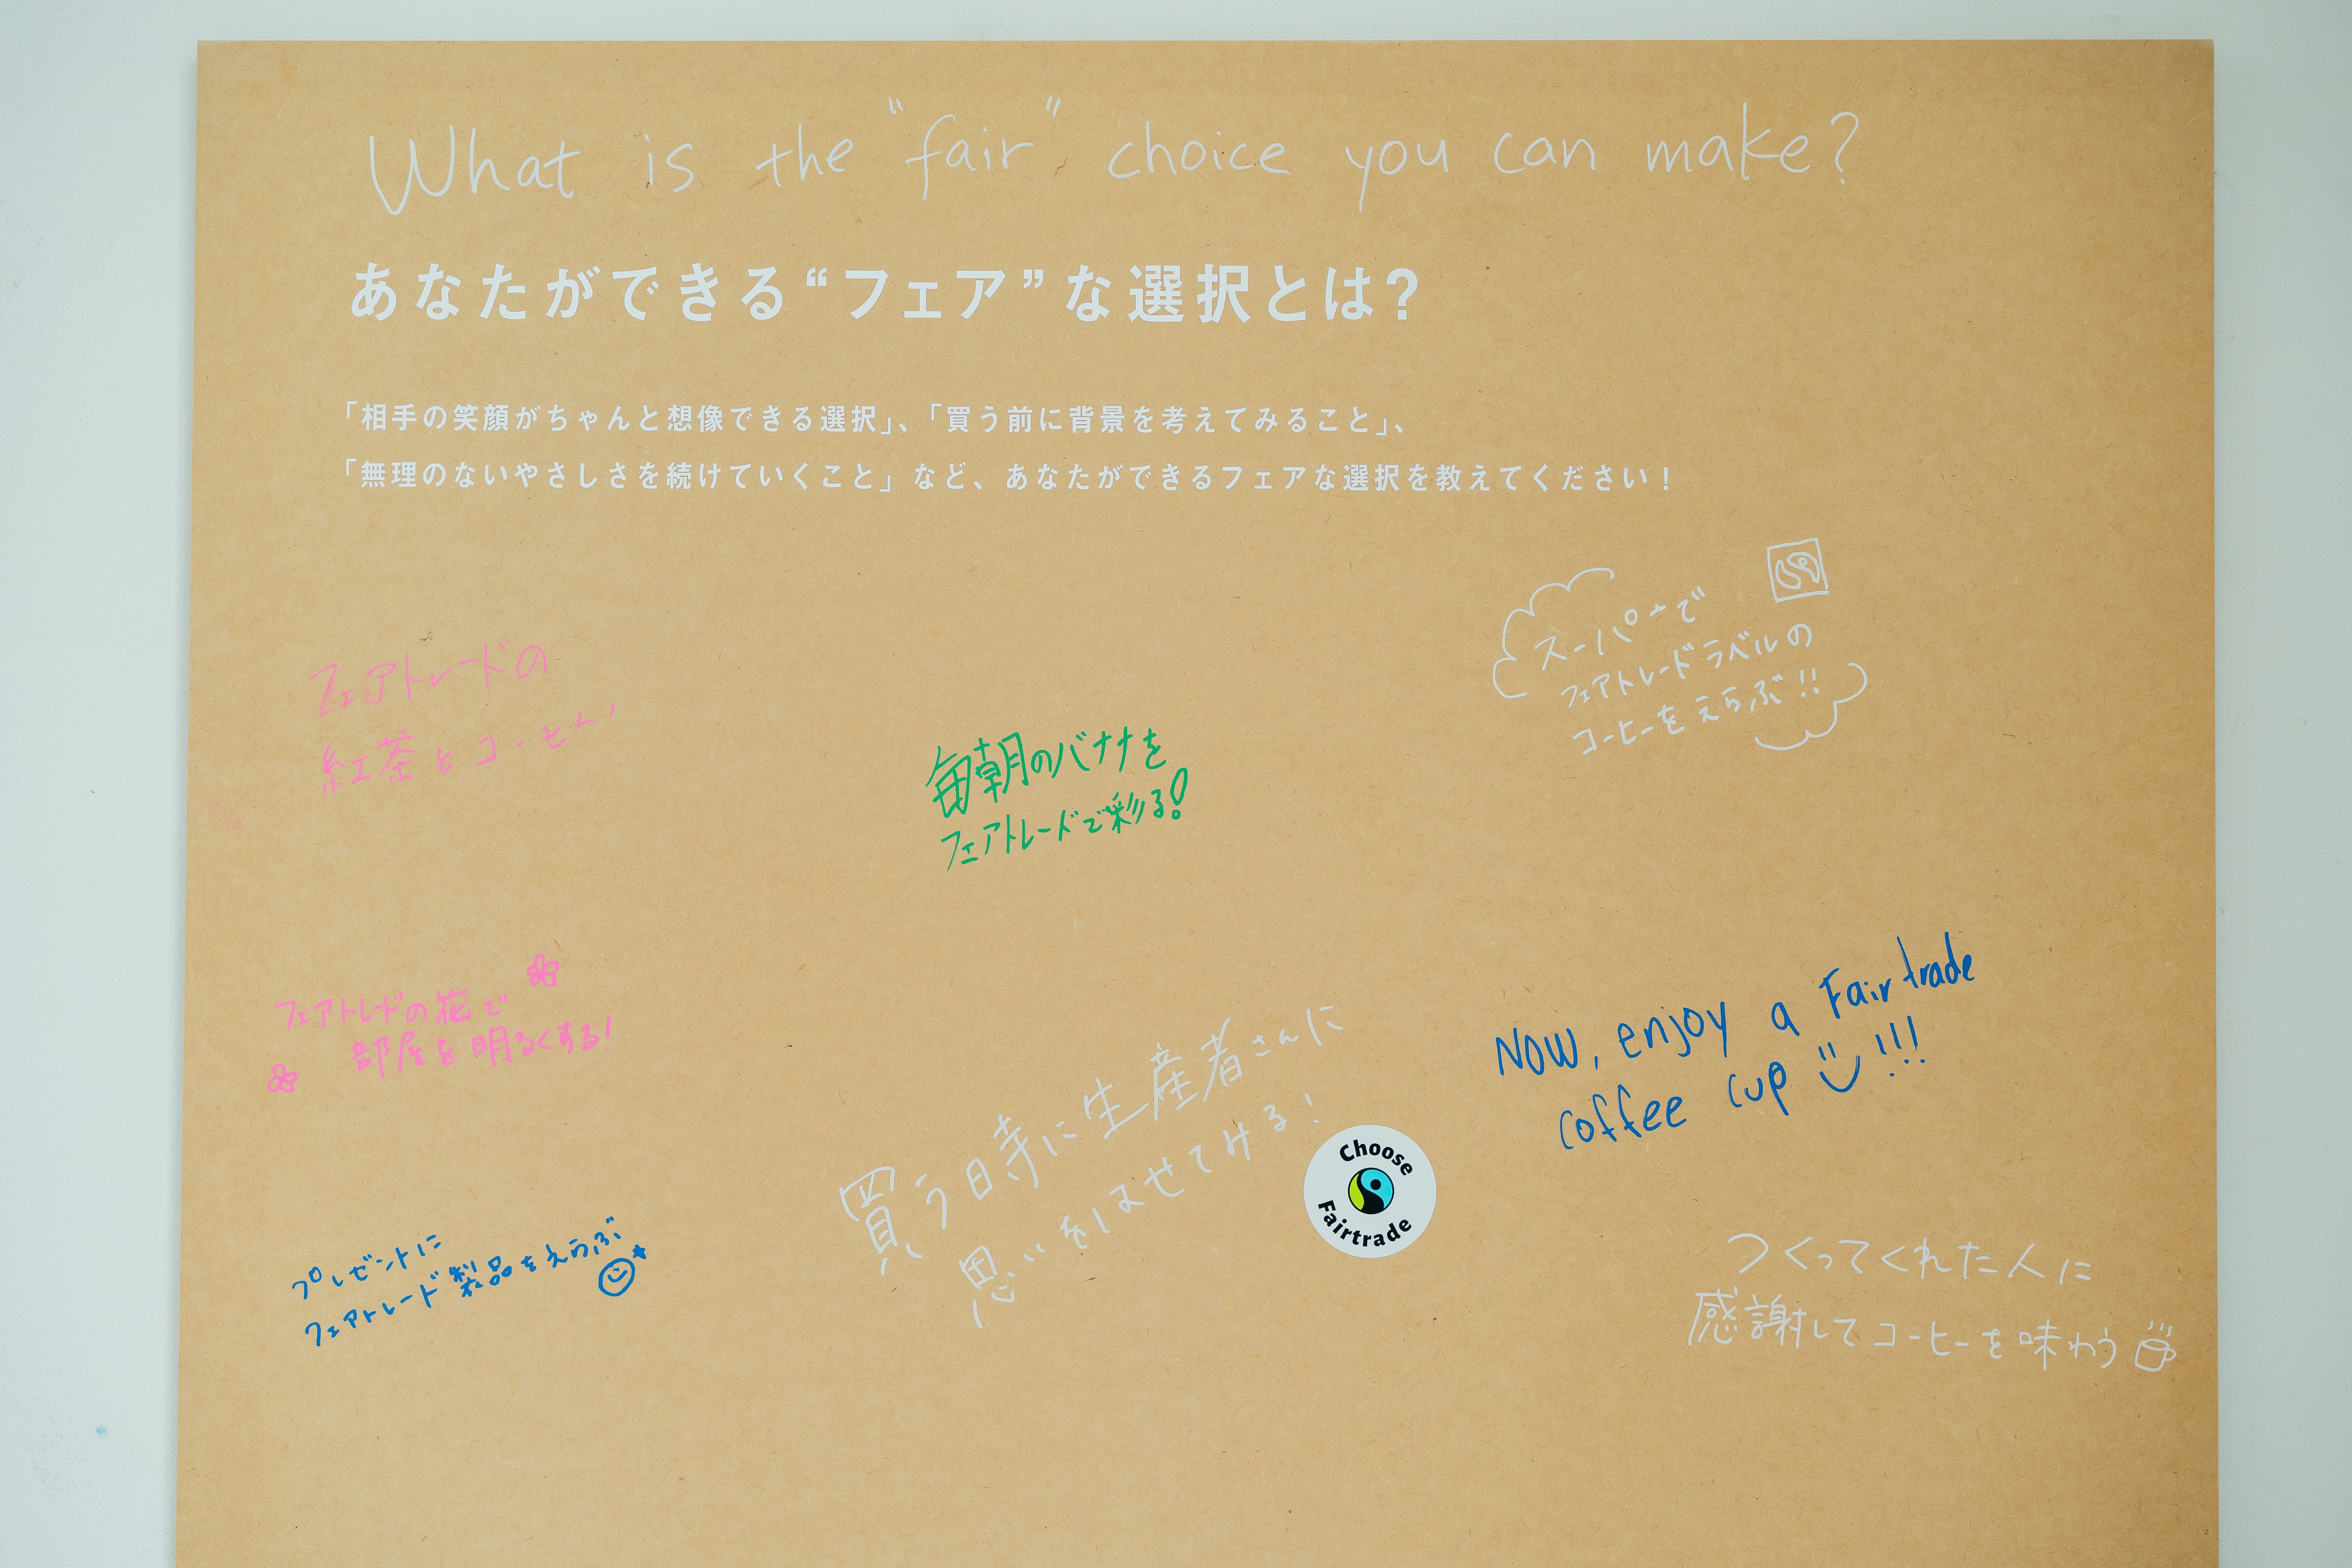 What is the "fair" choice you can make?
あなたができる“フェア”な選択とは?
「相手の笑顔がちゃんと想像できる選択」、「買う前に背景を考えてみること」、
「無理のないやさしさを続けていくこと」など、あなたができるフェアな選択を教えてください！
スーパーで
フェアトレードラベルの
コーヒーをえらぶ!!
フェアトレードの
紅茶を
毎朝のバナナを
フェアトレードで彩る!
フェアトレードの花で
部屋を明るくする!
Now, enjoy a Fairtrade
coffee cup !!!
買う時に生産者さんに
思いをはせてみる!
Choose
Fairtrade
プレゼントに
フェアトレード製品をえらぶ
つくってくれた人に
感謝してコーヒーを味わう